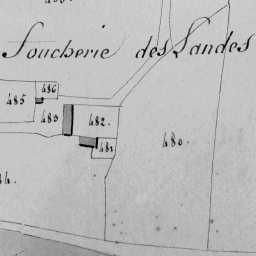 Foucherie des Landes
486
485
483
482.
481
480.